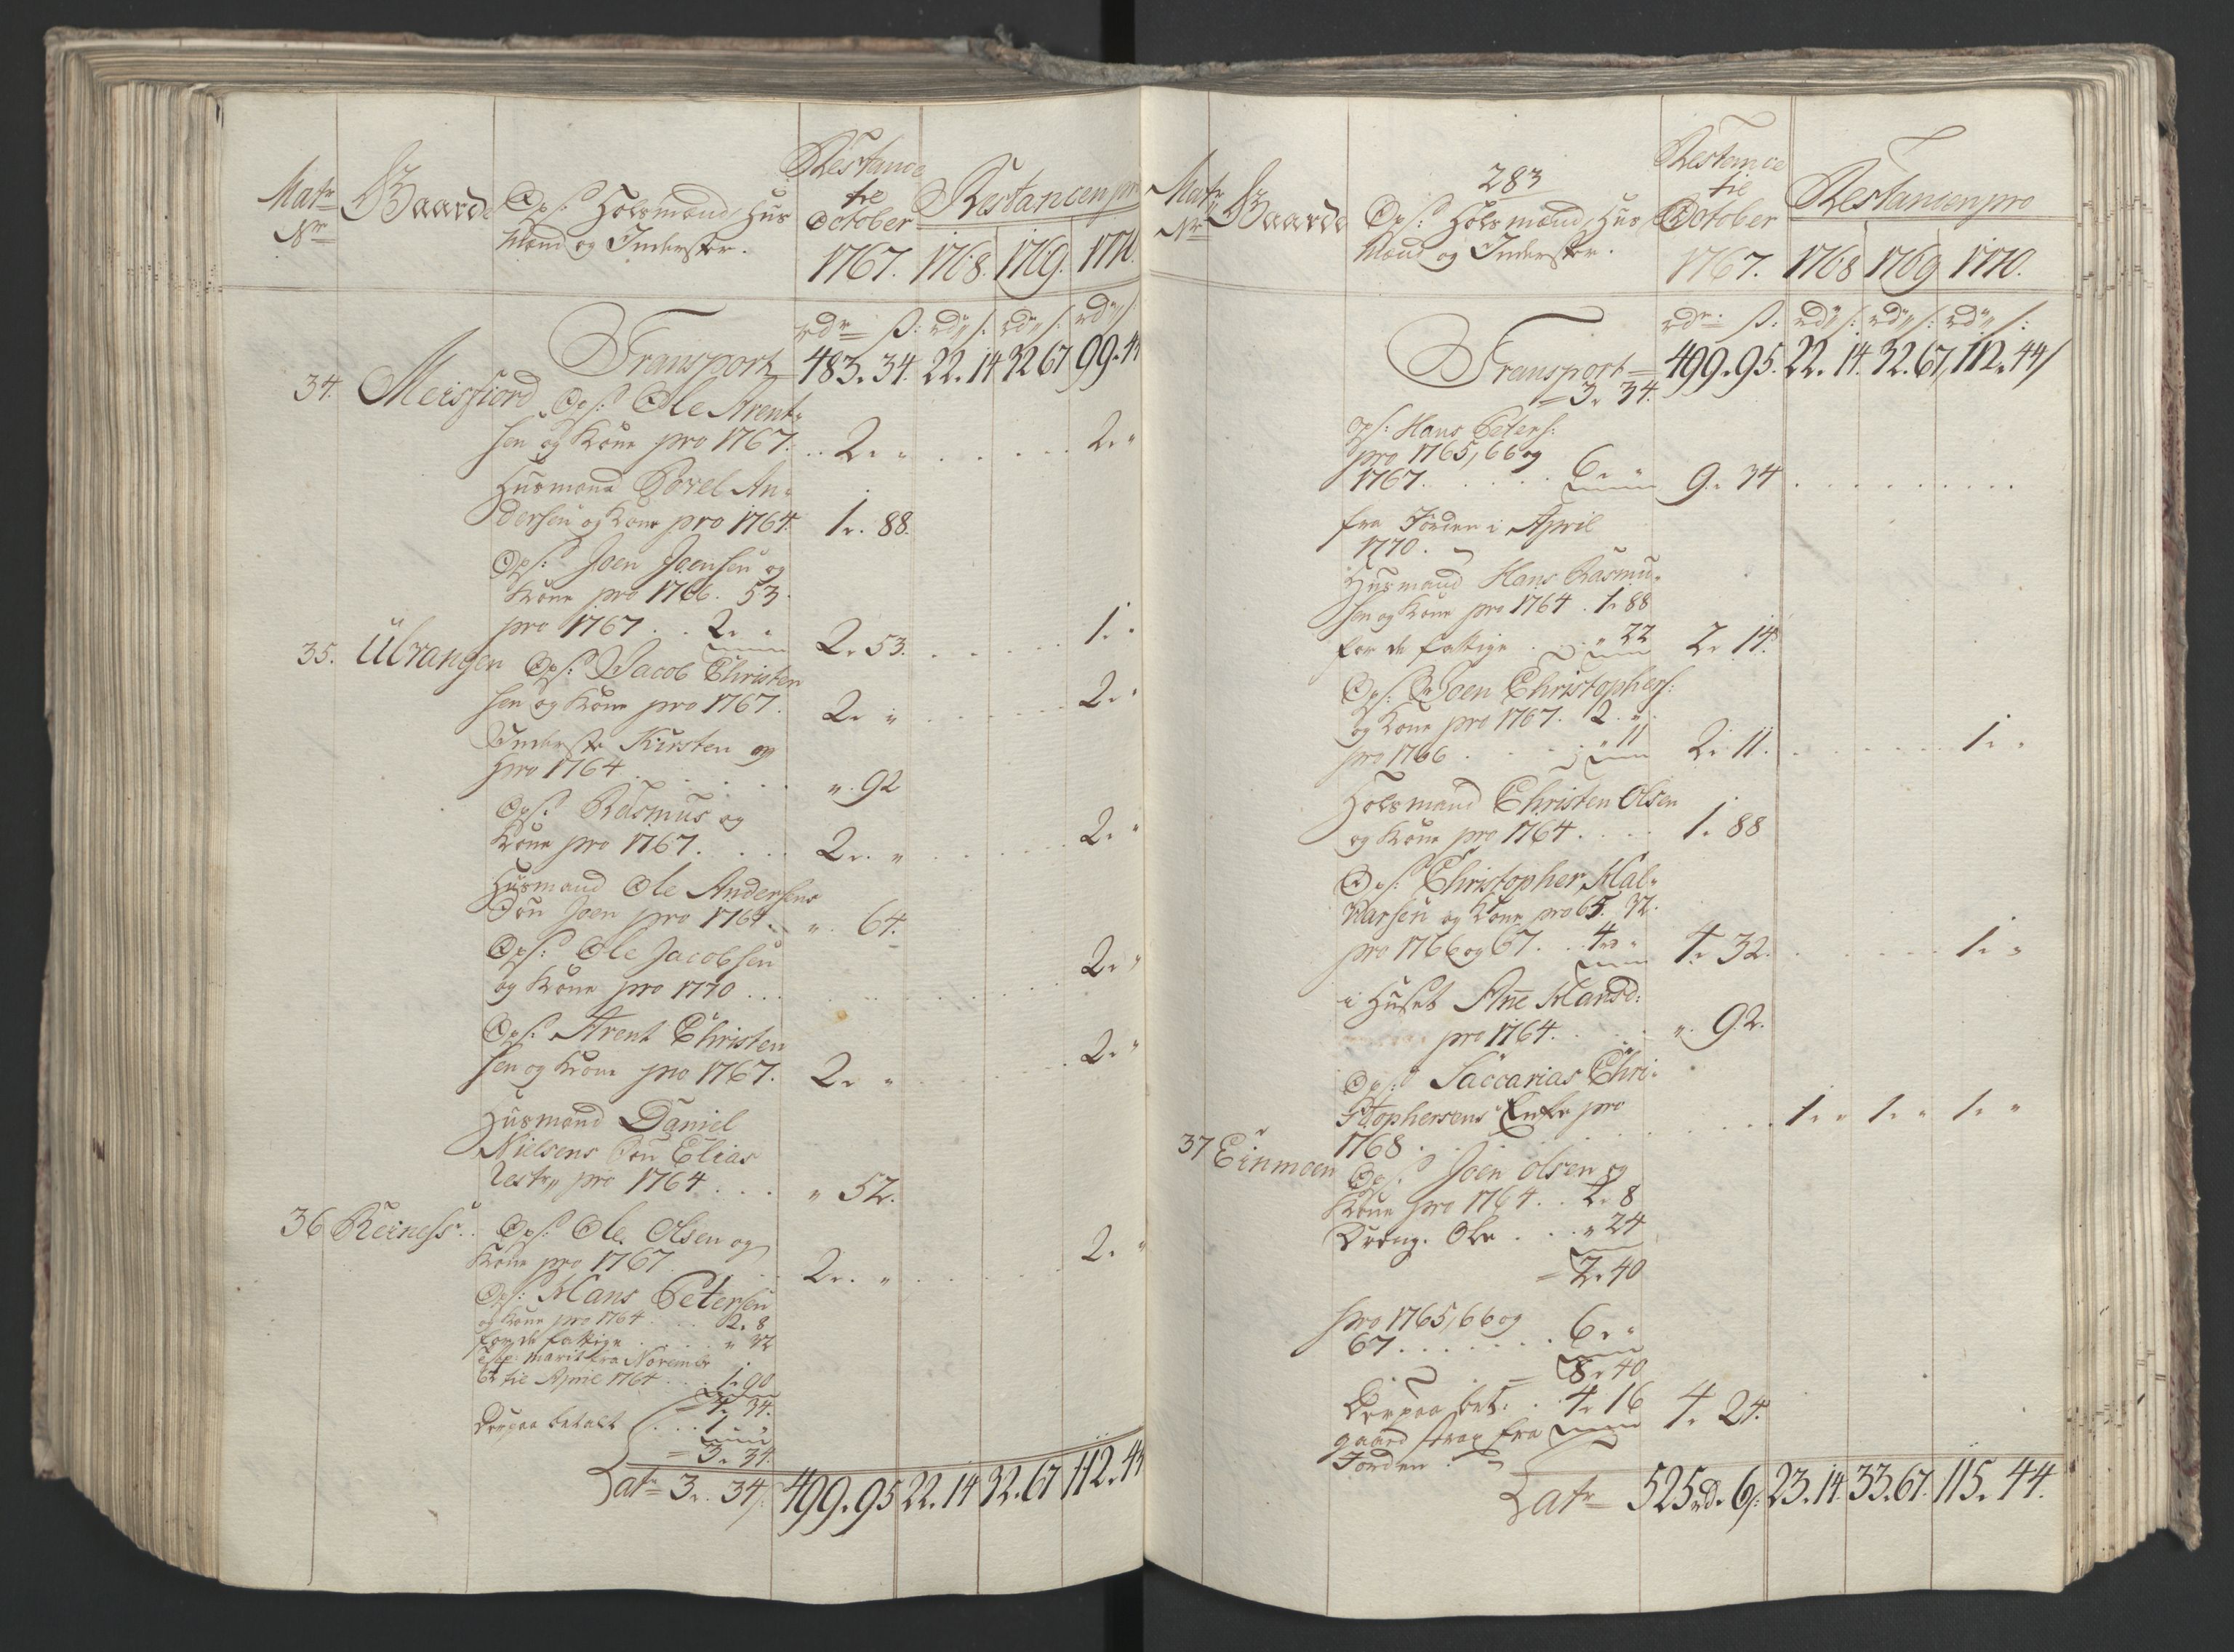 Matr Gaarde Ops: Holsmænd, Hus Restance Restancen pro
Nr Mænd og Inderster. til
October
1767. 1768. 1769. 1770.
rdr ß: rd ß: rd ß: rd ß
Transport 483. 34. 22. 14 32 67 99. 44
34. Meisfiord Ops: Ole Arent-
sen og Kone pro 1767. 2. " 2. "
Husmand Povel An-
dersen og Kone pro 1764. 1. 88.
Ops: Joen Joensen og
Kone pro 1766. 53.
pro 1767 . . 2. " 2. 53. 1. "
35. Ulvangen Ops: Jacob Christen
sen og Kone pro 1767. 2. " 2. "
Inderste Kirsten
pro 1764 . . . . ". 92
Ops: Rasmus og
Kone pro 1767. . . . 2. " 2. "
Husmand Ole Andersens
Søn Joen pro 1764. ". 64.
Ops: Ole Jacobsen
og Kone pro 1770 . . . 2. "
Ops: Arent Christen
sen og Kone pro 1767. 2. " 2. "
Husmand Daniel
Nielsens Søn Elias
rest pro 1764 . . . " 52.
36 Reiness. Ops: Ole Olsen og
Kone pro 1767 2. " 2. "
Ops: Hans Petersen
og Kone pro 1764 . . . 2. 8
for de fattige . . . " 32
marit fra Novembr
til April 1764 . . 1. 90
= 4. 34.
Derpaa betalt . . 1
= 3. 34.
Latr 3. 34 499. 95 22. 14 32. 67 112. 44
283
Matr Gaarde Ops: Holsmænd, Hus Restance Restancen pro
Nr Mænd og Inderster. til
October
1767. 1768 1769 1770.
rdr. ß. rd ß: rd ß: rd ß:
Transport 499. 95. 22. 14. 32. 67. 112. 44
= 3. 34.
Ops: Hans Peters:
pro 1765, 66 og
1767. . . . . 6. " 9. 34
fra Jorden i April
1770.
Husmand Hans Rasmu-
sen og Kone pro 1764 . 1. 88
for de fattige . . " 22 2. 14.
Ops: Joen Christophers:
og Kone pro 1767. 2. ".
pro 1766 . . . " 11 2. 11. 1. "
Holsmand Christen Olsen
og Kone pro 1764. . . . 1. 88
Ops: Christopher Hal-
varsen og Kone pro 65. 32.
pro 1766 og 67. . 4. " 4. 32. 1. "
i Huset Ane Hansd:
pro 1764. . . . ". 92.
Ops: Saccarias Chri-
stophersens Enke pro
1768 . . . 1. " 1. " 1. "
37 Einmoen Ops: Joen Olsen og
Kone pro 1764 . . 2. 8
Dreng. Ole . . . " 24
= 2. 40
pro 1765, 66 og
67. . . . . . . 6. "
= 8. 40
Derpaa bet: . 4. 16 4. 24.
fra
Jorden.
Latr 525 rd. 6 ß. 23. 14. 33. 67. 115. 44.